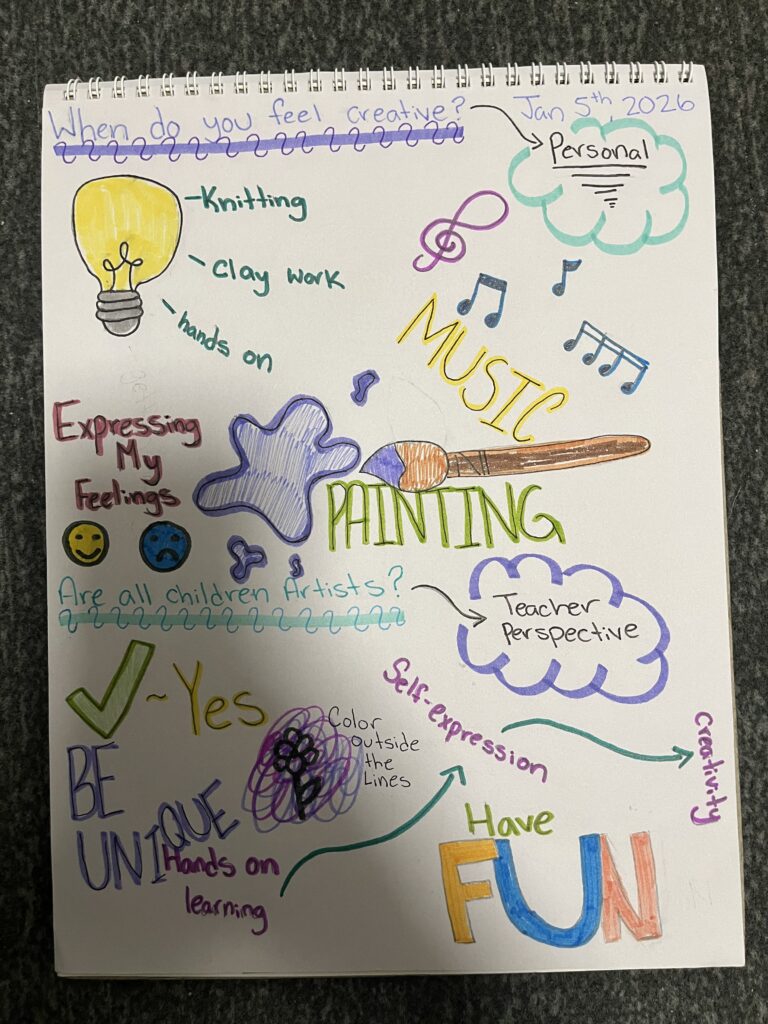 When do you feel creative?
Jan 5th, 2026
Personal
-Knitting
- Clay work
- hands on
MUSIC
Expressing
My
Feelings
PAINTING
Are all children Artists?
Teacher
Perspective
~Yes
Self-expression
Creativity
Color
outside
the
Lines
BE
UNIQUE
Hands on
learning
Have
FUN